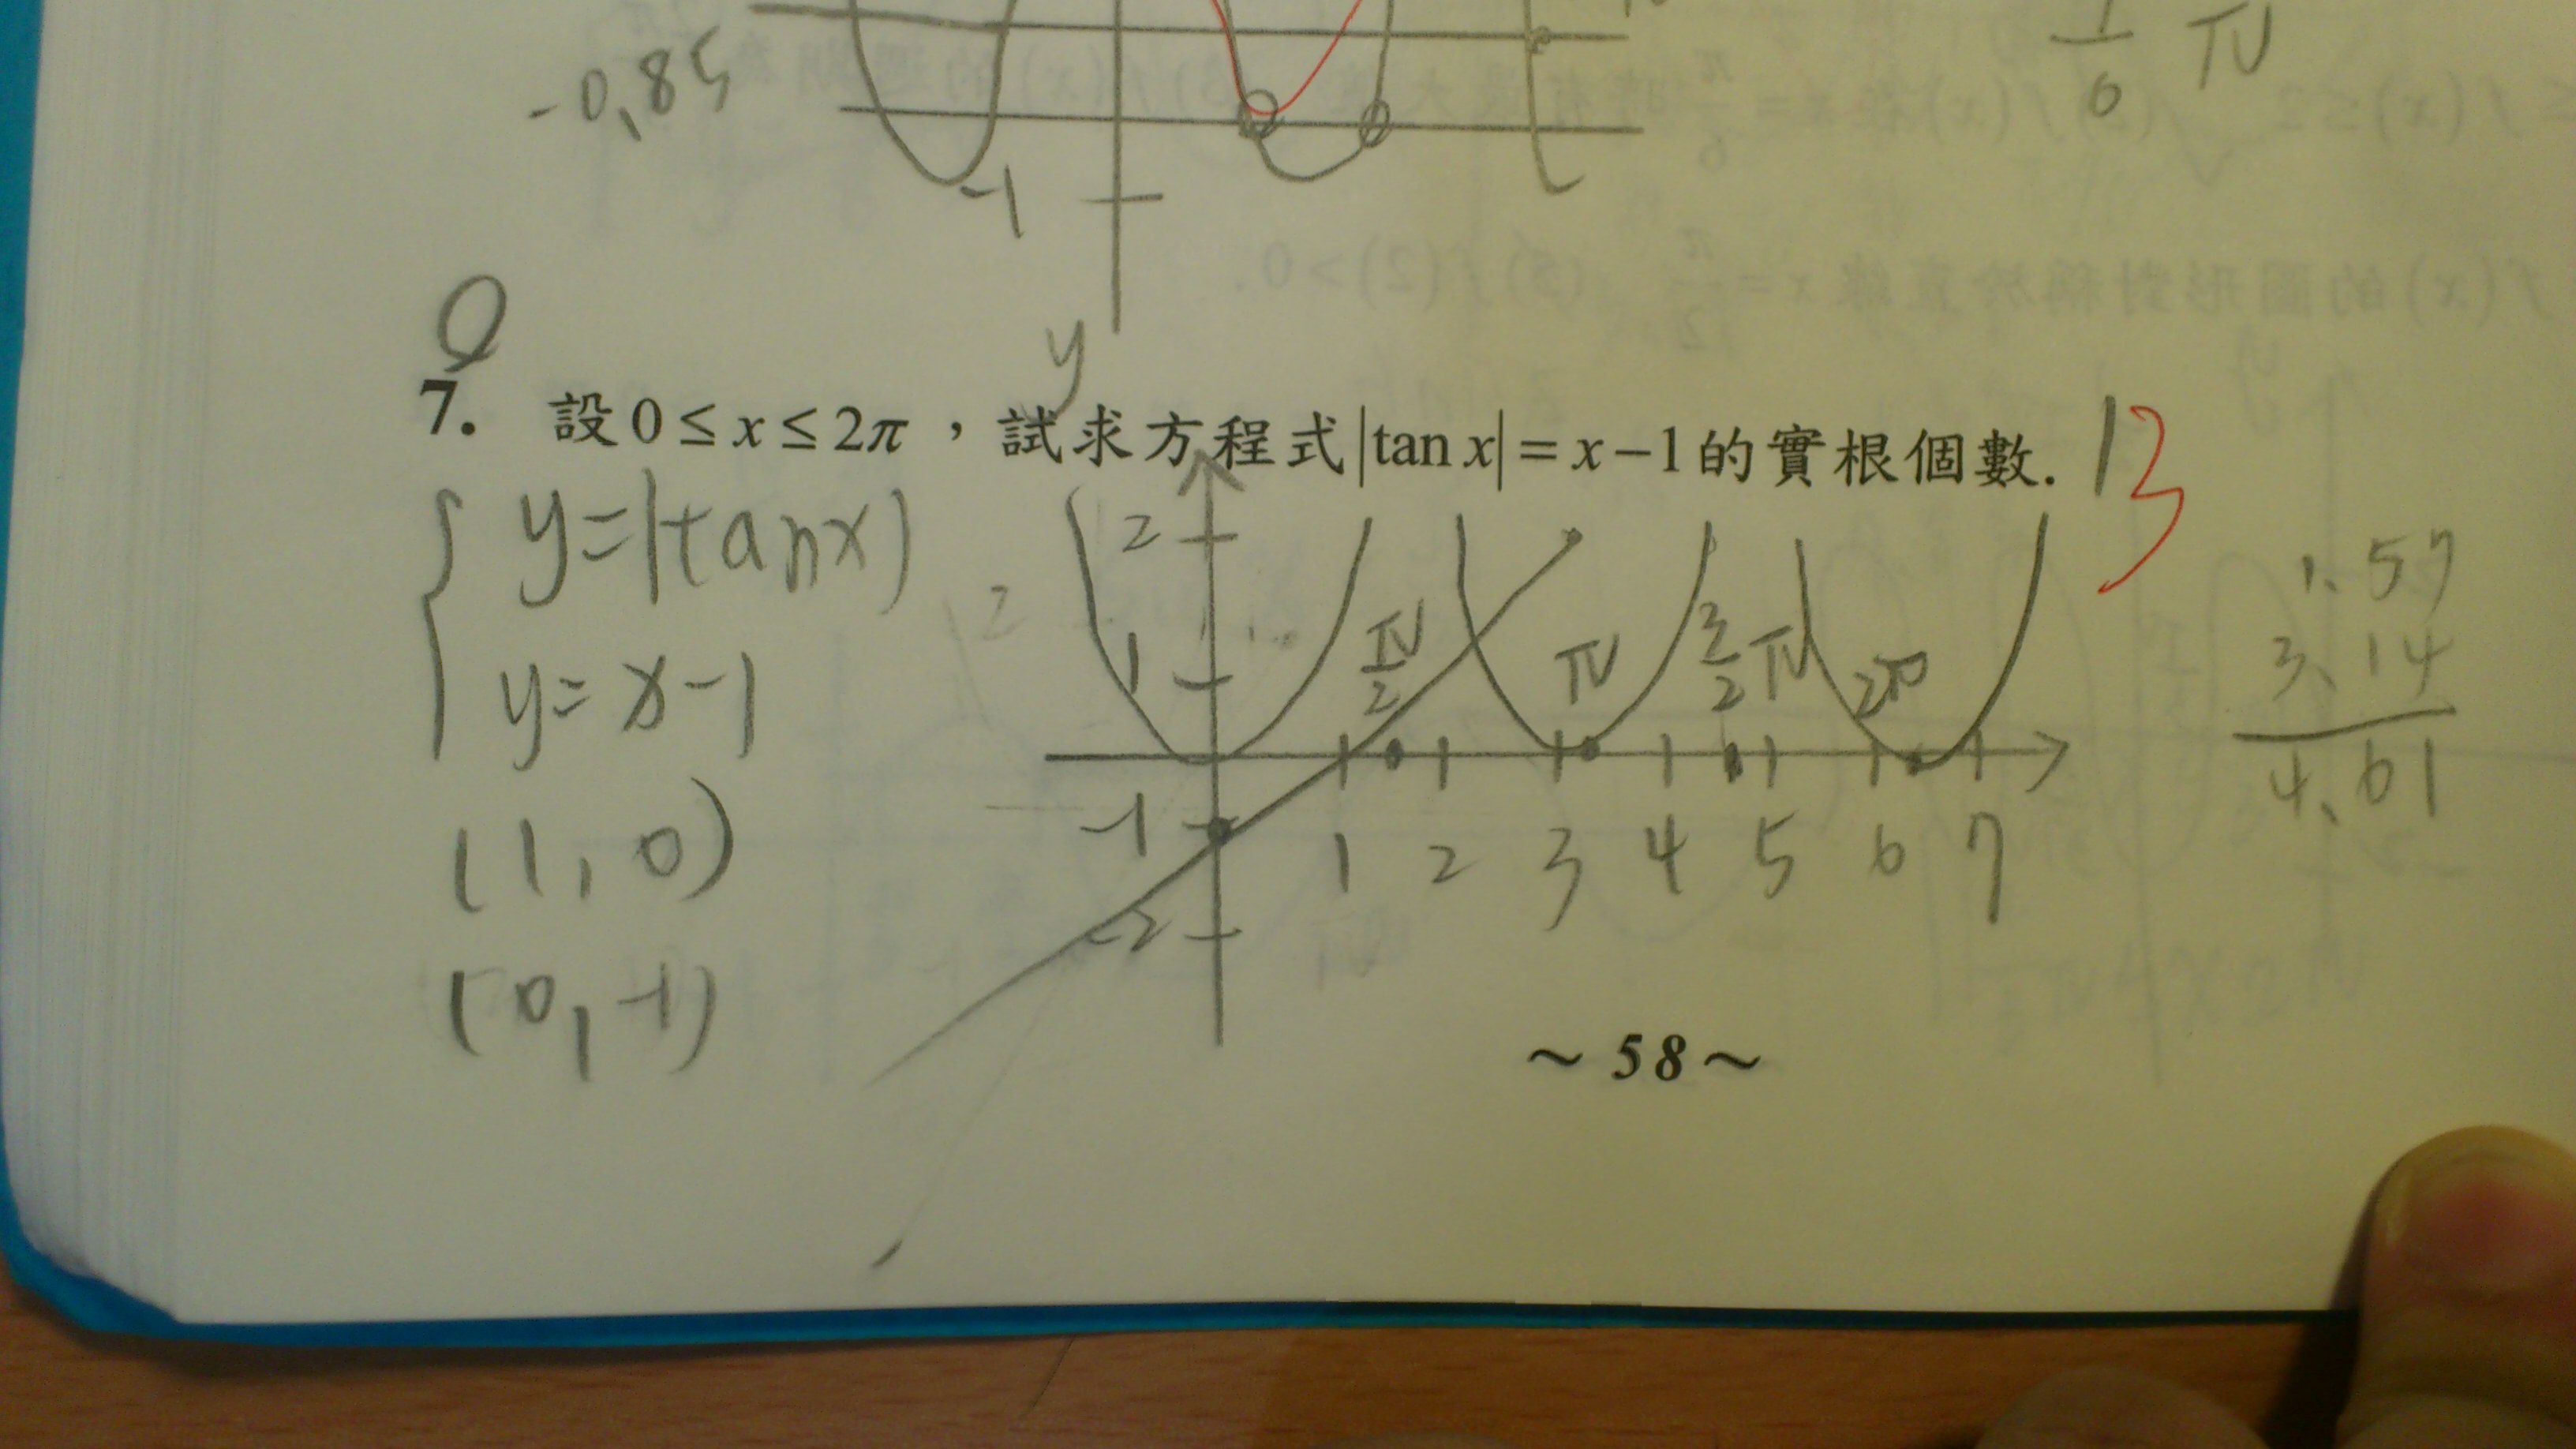 -0,85
-1
1/6 π
Q
7. 設 0 ≤ x ≤ 2π，試求方程式 |tan x| = x − 1 的實根個數. 1 3
y
y=|tanx|
y=x-1
(1,0)
(0,-1)
2
1
-1
-2
π/2
π
3/2 π
2π
1 2 3 4 5 6 7
1.57
3.14
4.61
～58～